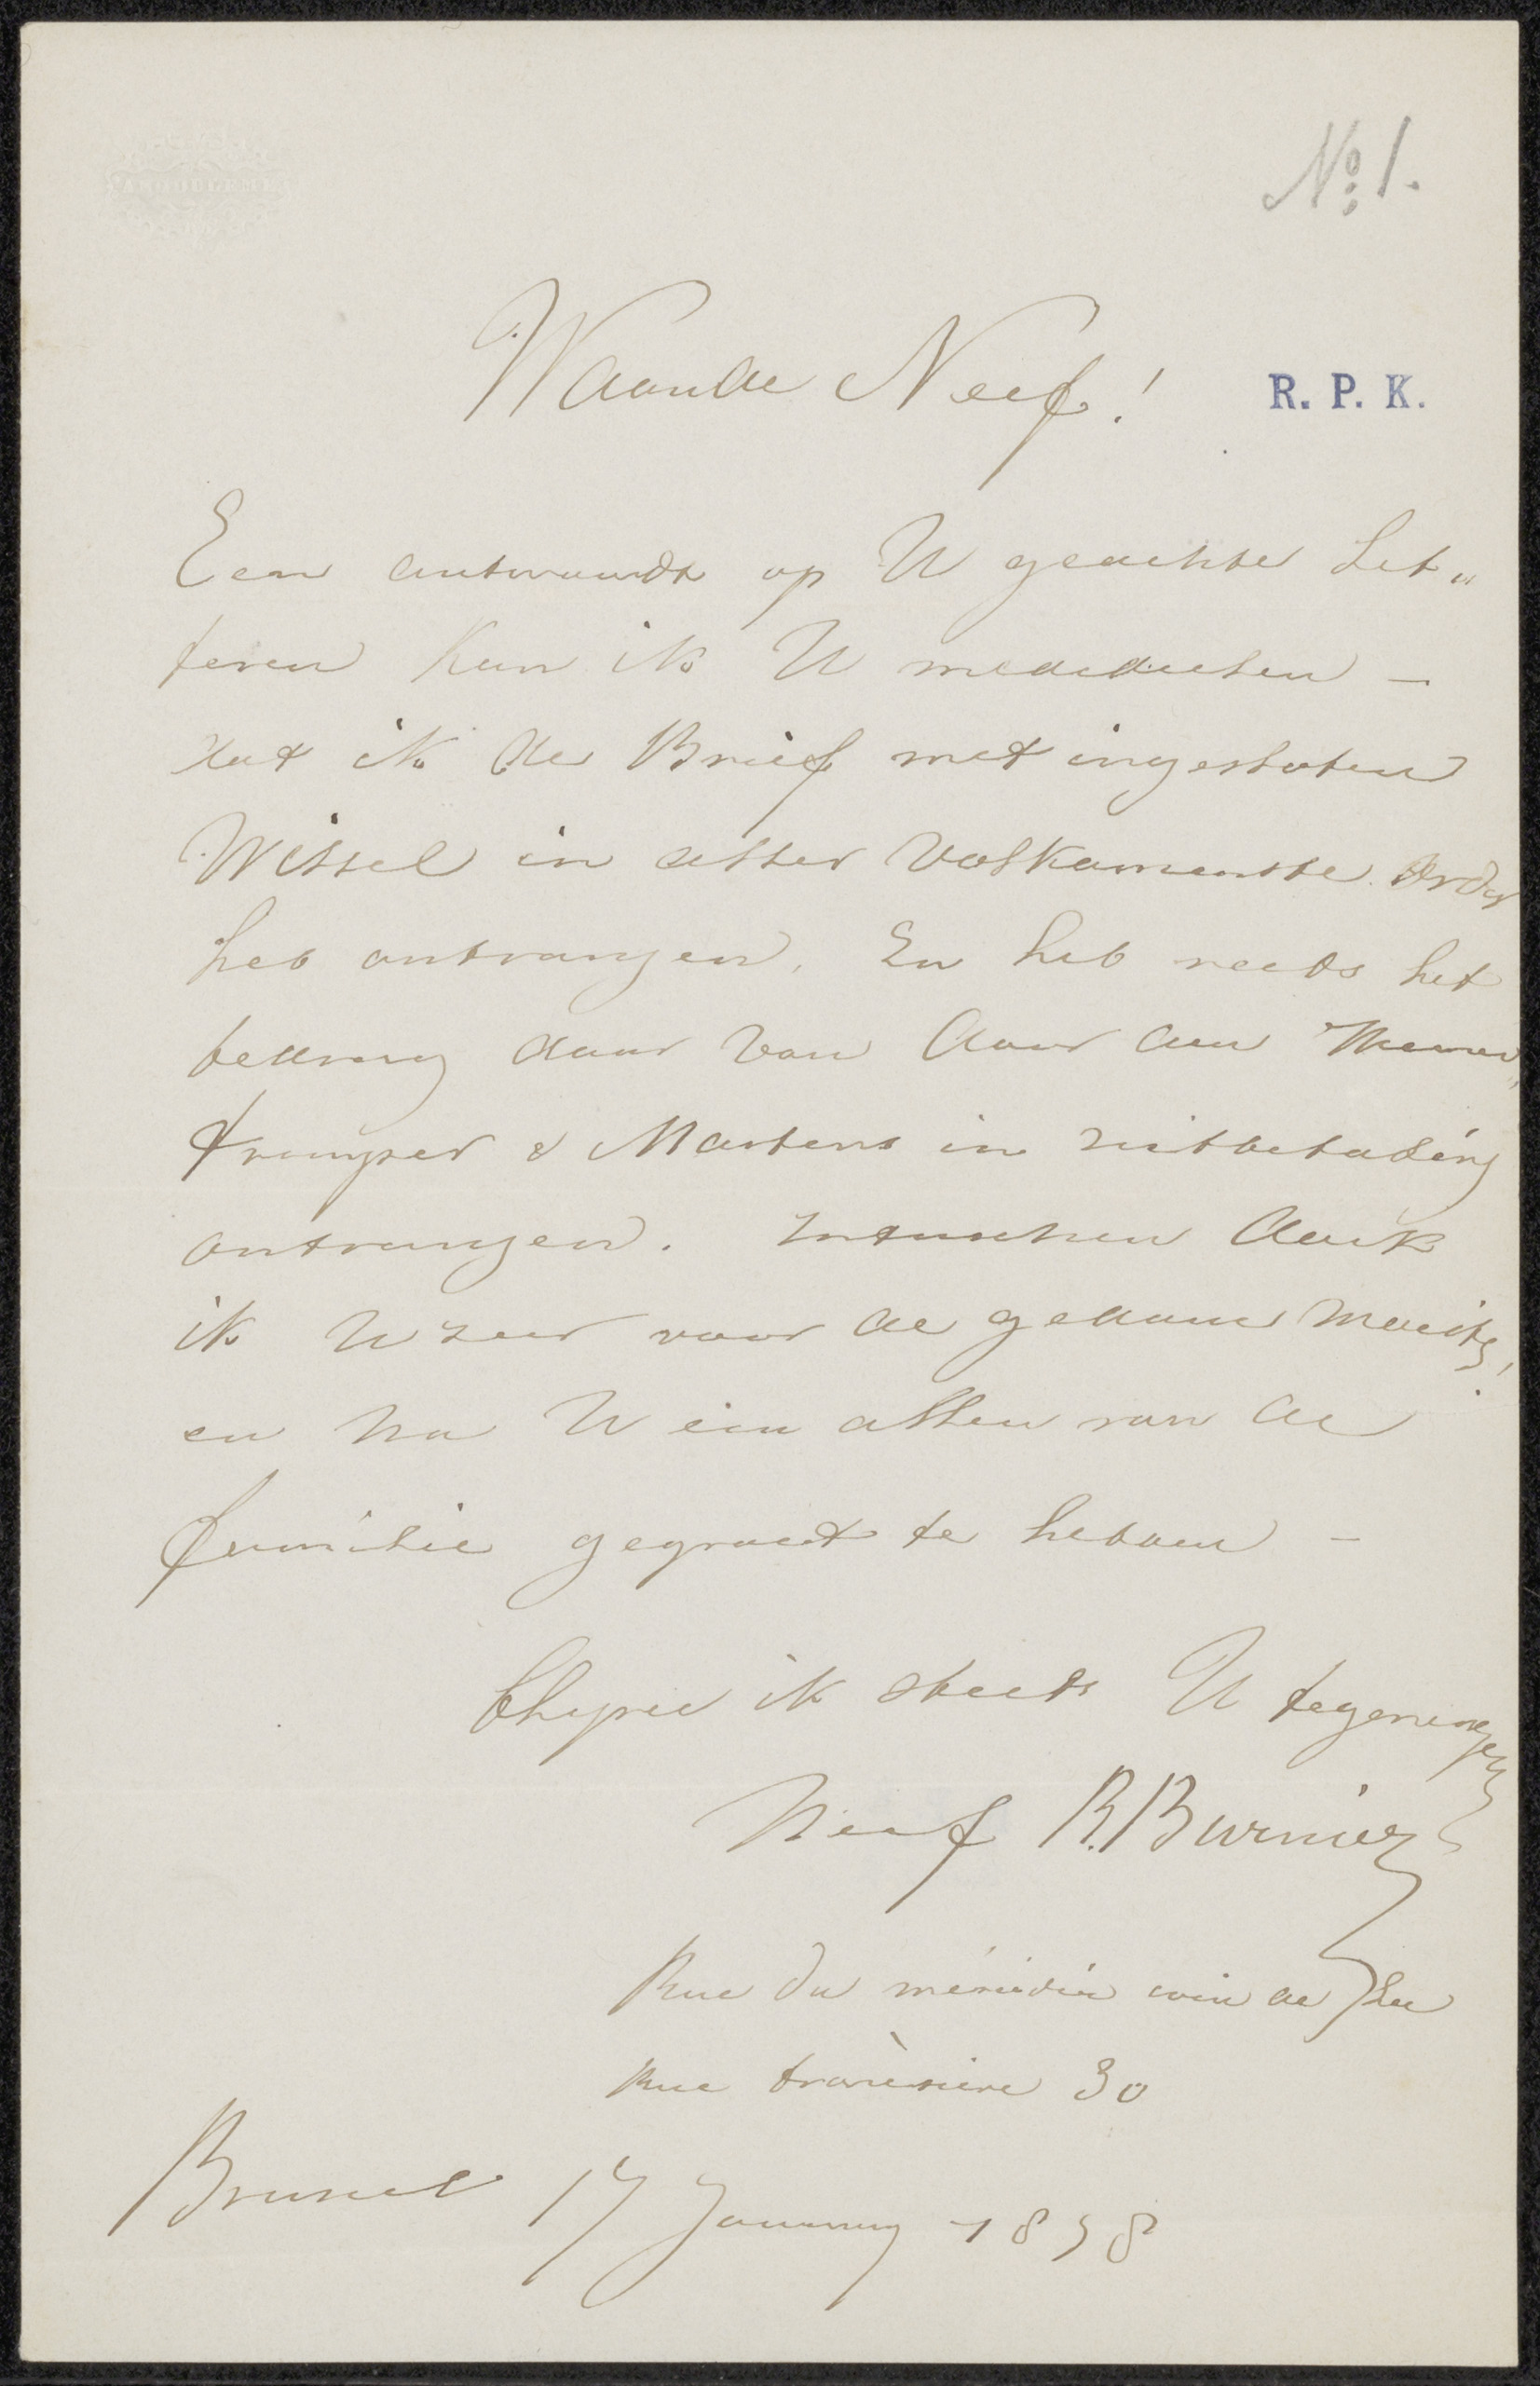 No. 1.
Waarde Neef!
R. P. K.
Een antwoordt op U geachte Let„
teren kan ik U meedeelen –
dat ik de Brief met ingesloten
Wissel in aller volkomenste Order
heb ontvangen. En heb reeds het
bedrag daar van door den
& Martens in uitbetaling
ontvangen. Intusschen dank
ik U zeer voor de gedane moeite,
en na U ein allen van de
familie gegroet te hebben –
Blijve ik steets U toegenegen
Neef R. Burnier
Rue du méridien coin de la
Rue traversière 30
Brussel 17 January 1858